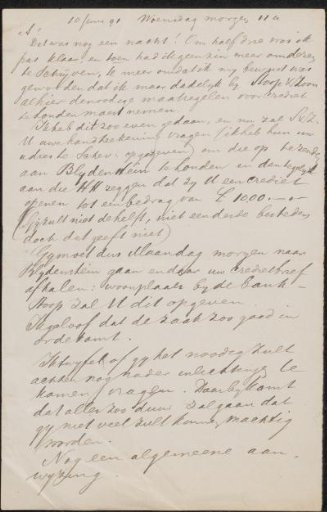 10 Juni 91 Woensdag morgen 11 u
S!
Het was nog een nacht! Om half drie was ik
pas klaar en toen had ik geen zin meer omden
te schrijven, te meer omdat ik my bewust was
geworden dat ik maar dadelyk by Stoop &
alhier de noodige maatregelen voor crediet
te houden moest nemen.
Ik heb dit zooeven gedaan, en nu zal S & Z.
U uw handteekening vragen (ik heb hun uw
adres te Schev. opgegeven) om die op te zenden
aan Blydenstein te Londen en den
aan die HH zeggen dat zy U een crediet
openen tot een bedrag van £ 1000.–
(Gy zult niet de helft, niet een derde besteden
doch dat geeft niet)
Gy moet dus Maandag morgen naar
Blydenstein gaan en daar uw credietbrief
afhalen: woonplaats by de Bank –
Stoop zal U dit opgeven
Ik geloof dat de zaak zoo goed in
orde komt.
Ik twyfel of gy het noodig zult
achten nog nader inlichtingen te
komen vragen. Daarby komt
dat alles zoo duur zal gaan dat
gy niet veel zult kunnen machtig
worden.
Nog een algemeene aan-
wyzing.